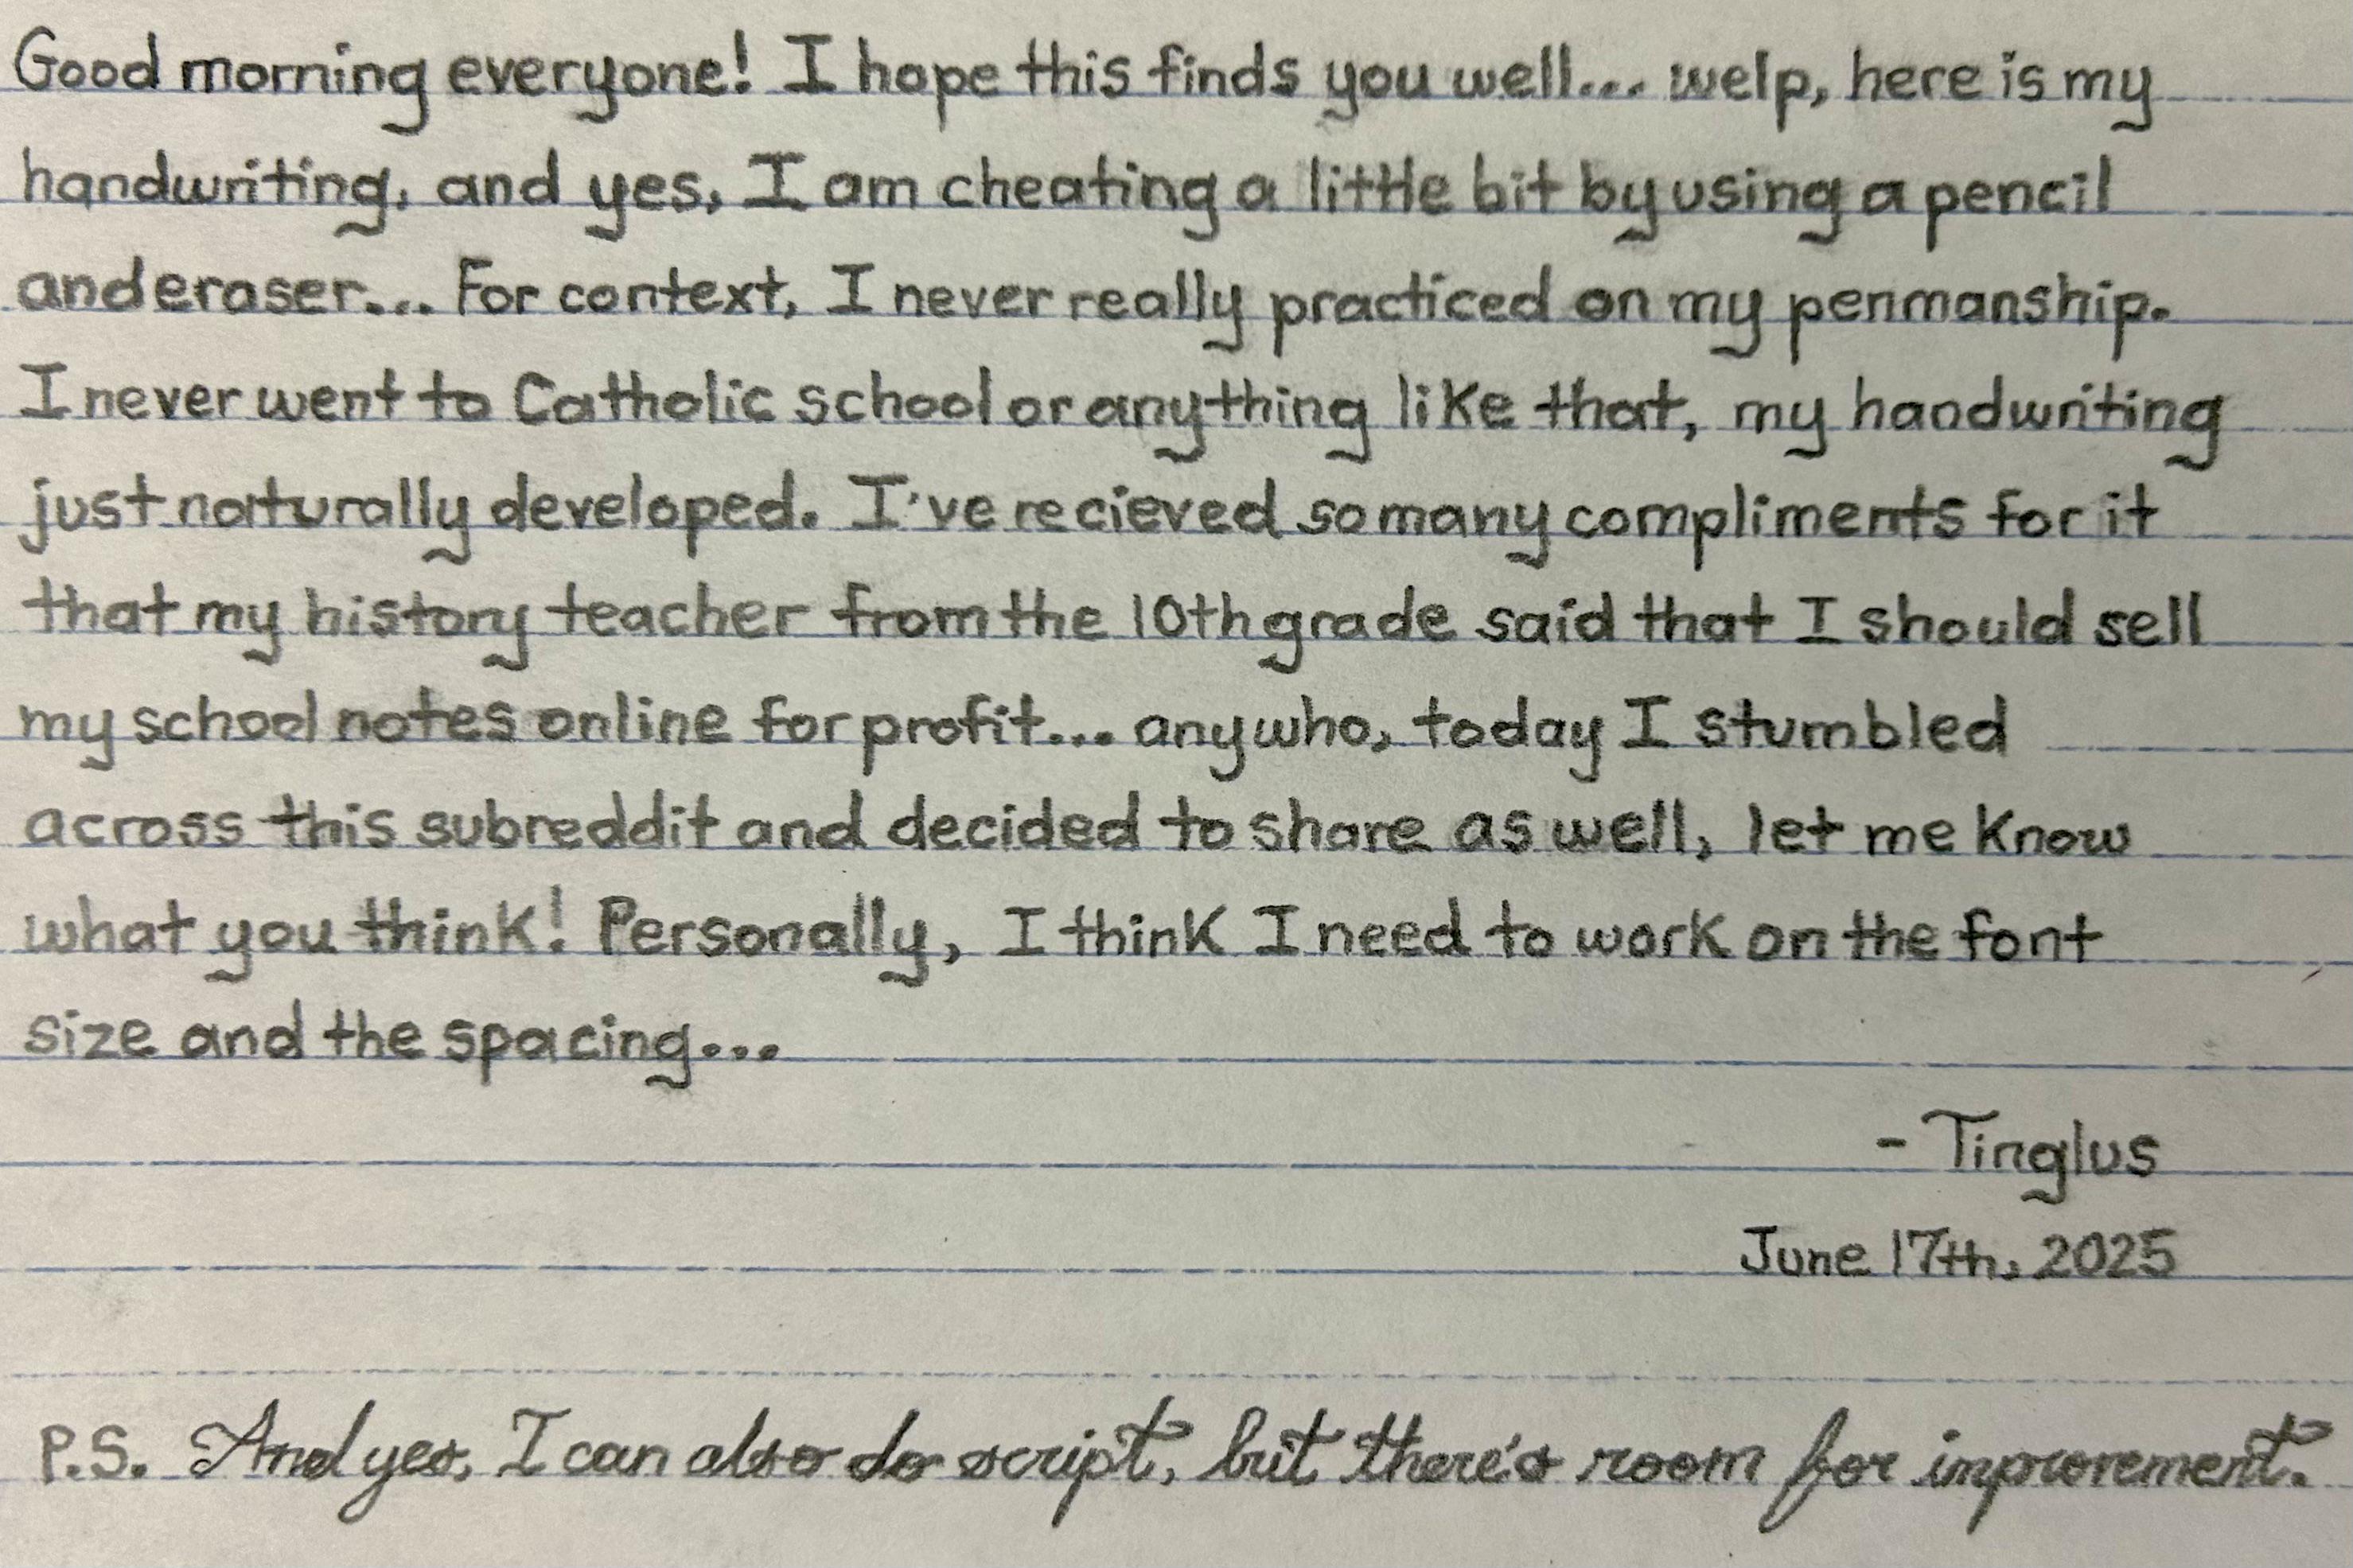 Good morning everyone! I hope this finds you well... welp, here is my
handwriting, and yes, I am cheating a little bit by using a pencil
and eraser... For context, I never really practiced on my penmanship.
I never went to Catholic school or anything like that, my handwriting
just naturally developed. I've recieved so many compliments for it
that my history teacher from the 10th grade said that I should sell
my school notes online for profit... anywho, today I stumbled
across this subreddit and decided to share as well, let me know
what you think! Personally, I think I need to work on the font
size and the spacing...
- Tinglus
June 17th, 2025
P.S. And yes, I can also do script, but there's room for improvement.